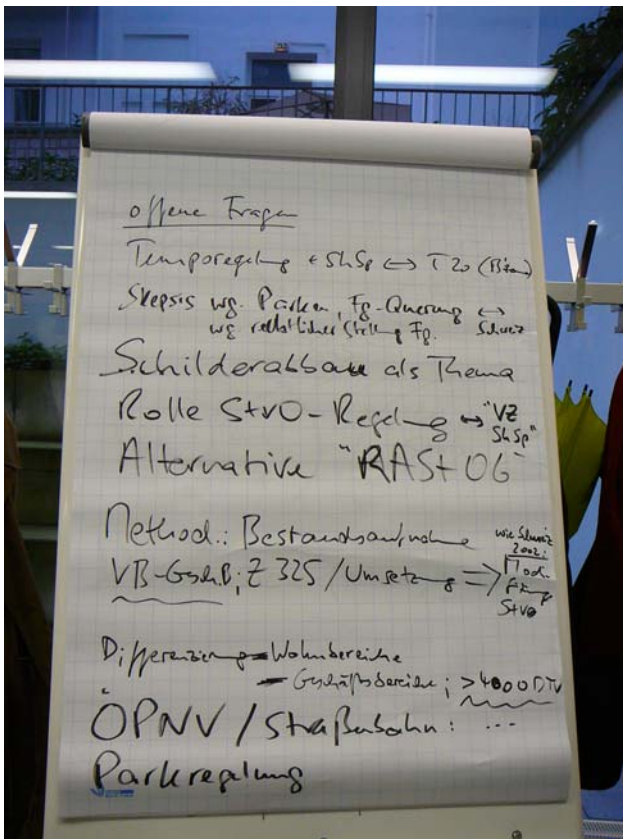 offene Fragen
Temporegelung + ShSp ↔ T20
Skepsis wg. Parken, Fg-Querung ↔
wg rechtlicher Stellung Fg. Schweiz
Schilderabbau als Thema
Rolle StVO-Regelung ↔ "VZ
ShSp"
Alternative "RASt 06"
Method.: Bestandsaufnahme
wie Schweiz
2002:
VB-GeschB; Z 325 / Umsetzung ⇒
StVO
Differenzierung - Wohnbereiche
- Geschäftsbereiche; >4000 DTV
ÖPNV / Straßenbahn: ...
Parkregelung